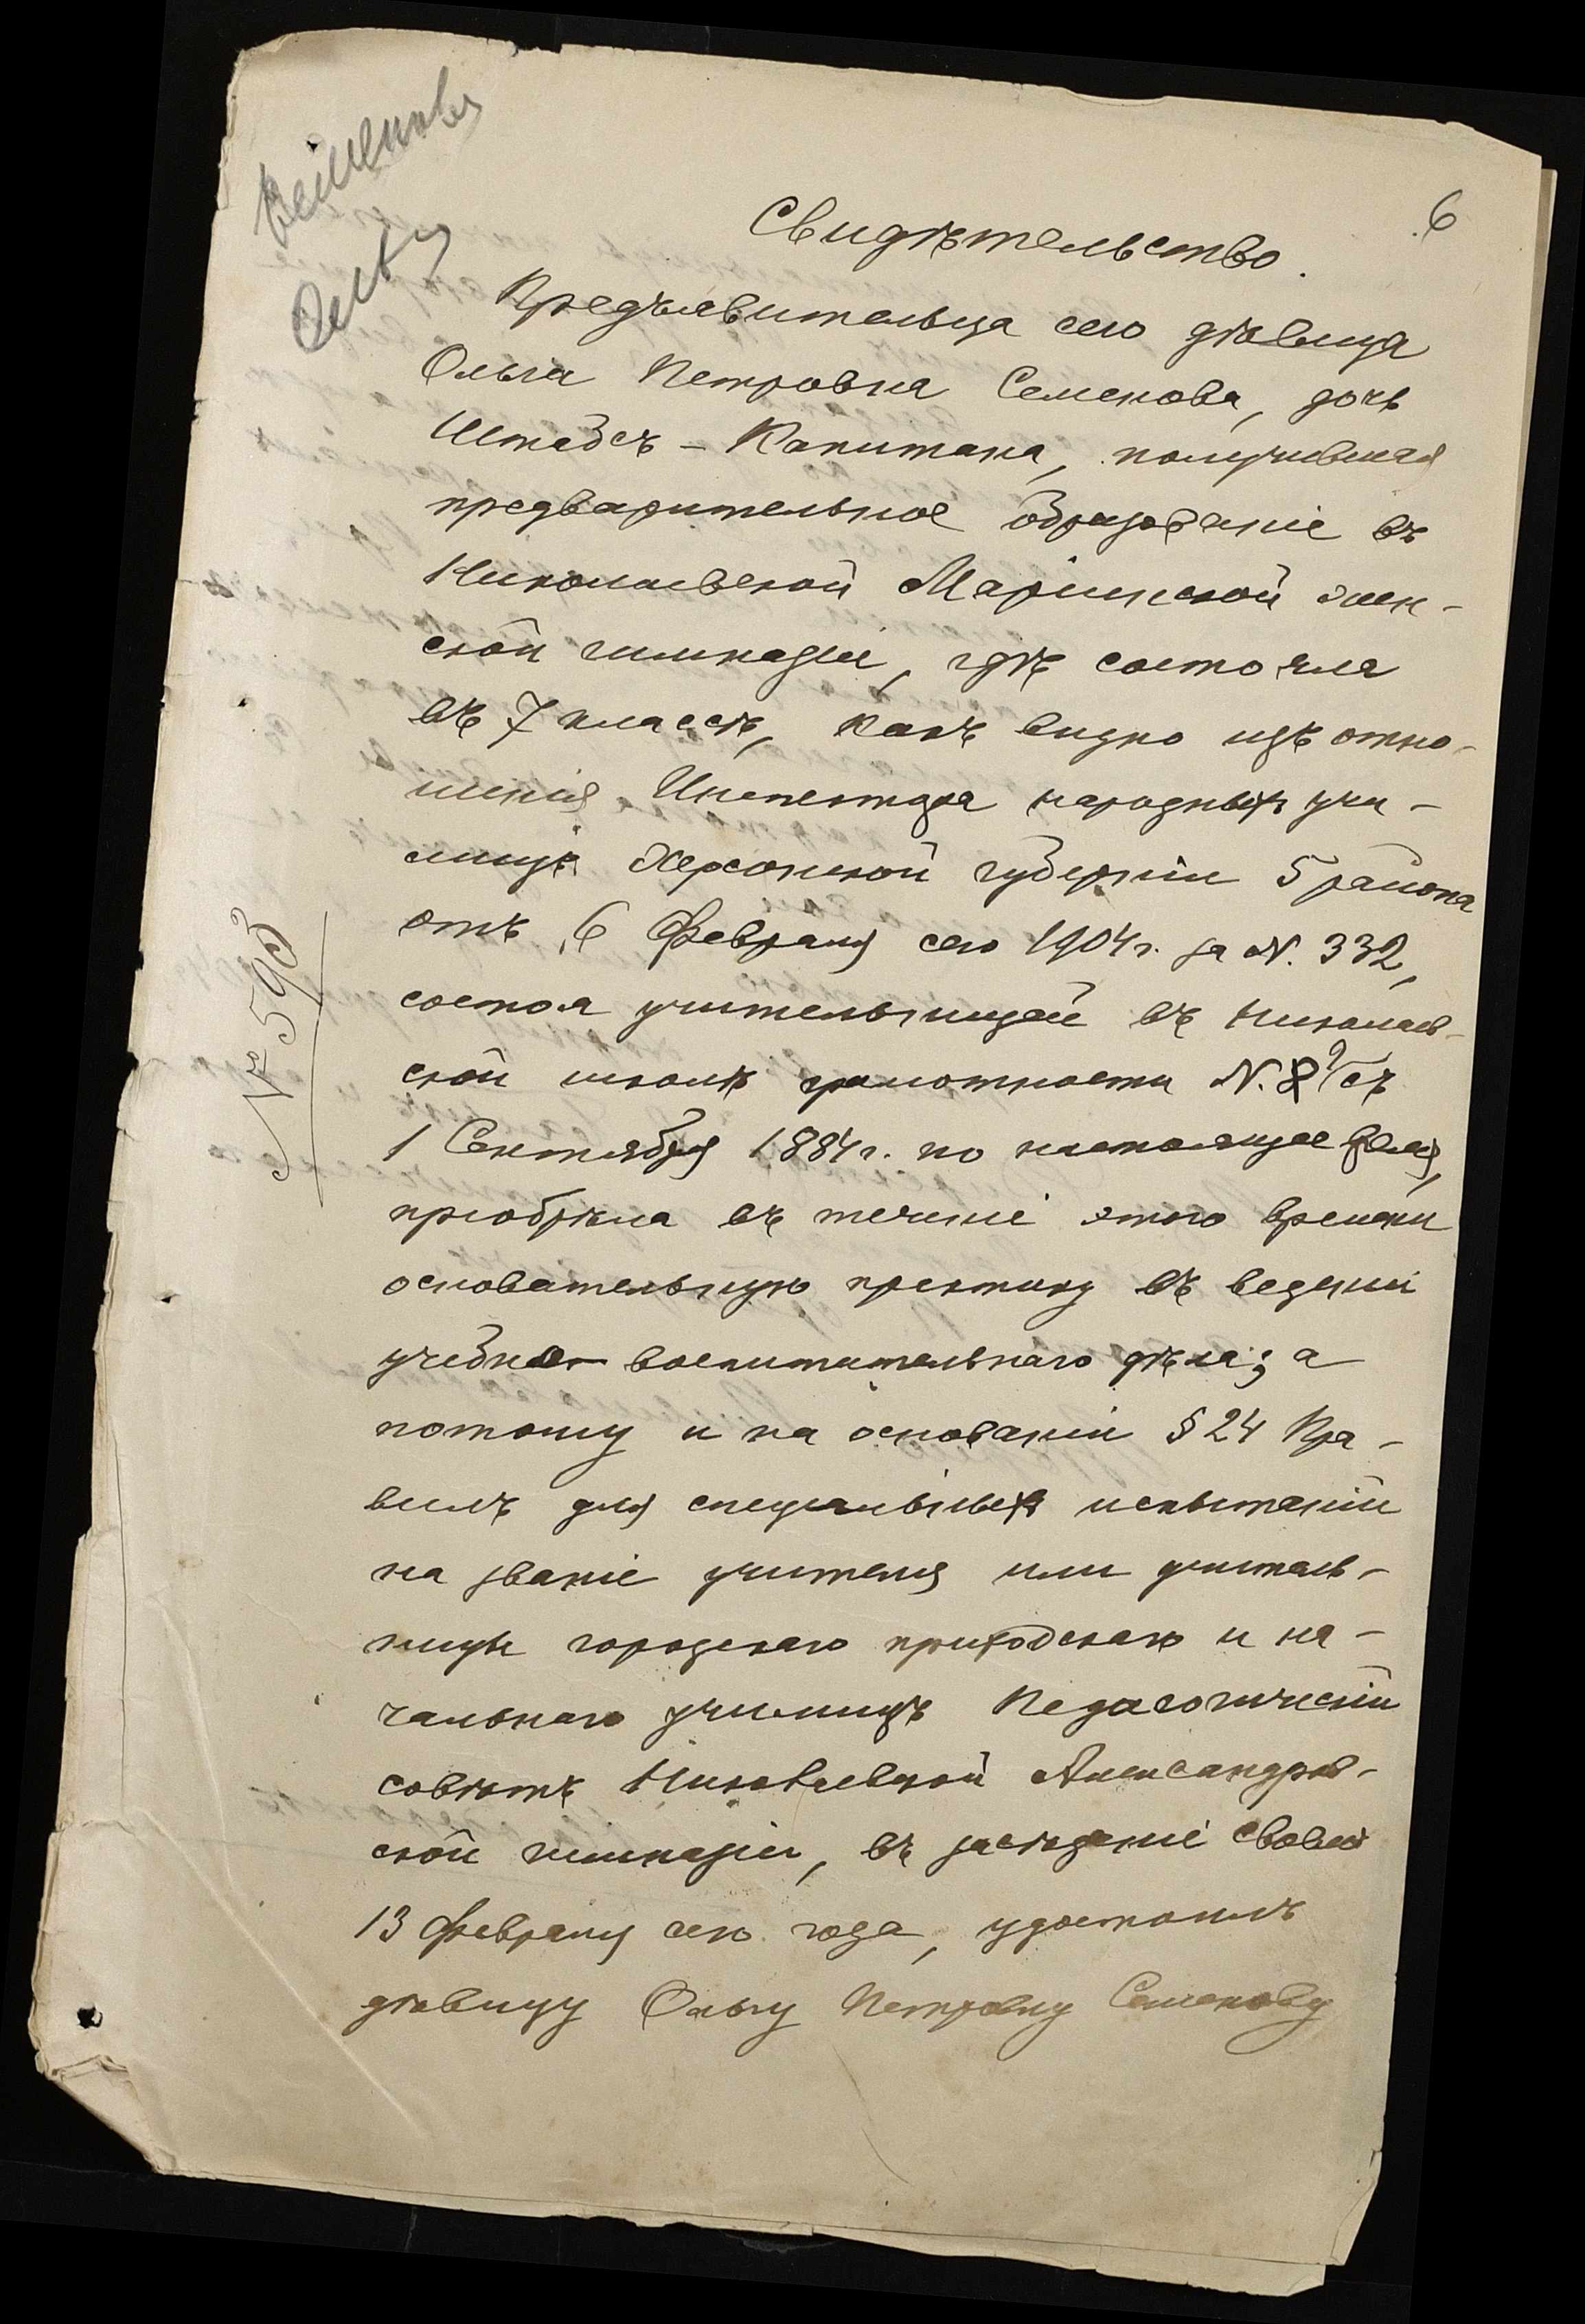 6
Свидѣтельство.
Предъявительца сего дѣвица
Ольга Петровна Семенова, дочь
Штабсъ - Капитана, получившая
предварительное образованіе въ
Николаевской Маріинской жен-
ской гимназіи, гдѣ состояла
въ 7 классѣ, какъ видно изъ отно-
шенія Инспектора народныхъ учи-
лищъ Херсонской губерніи 5 района
отъ 6 Февраля сего 1904 г. за N. 332,
состоя учительницей въ Николаев-
ской школѣ грамотности N. 9 съ
1 Сентября 1884 г. по настоящее время,
пріобрѣла въ теченіе этого времени
основательную практику въ веденіи
учебно-воспитательнаго дѣла; а
потому и на основаніи § 24 Пра-
вилъ для спеціальныхъ испытаній
на званіе учителя или учитель-
ницы городскаго приходскаго и на-
чальнаго училищъ Педагогическій
совѣтъ Николаевской Александров-
ской гимназіи, въ засѣданіи своемъ
13 февраля сего года, удостоилъ
дѣвицу Ольгу Петровну Семенову
№ 593